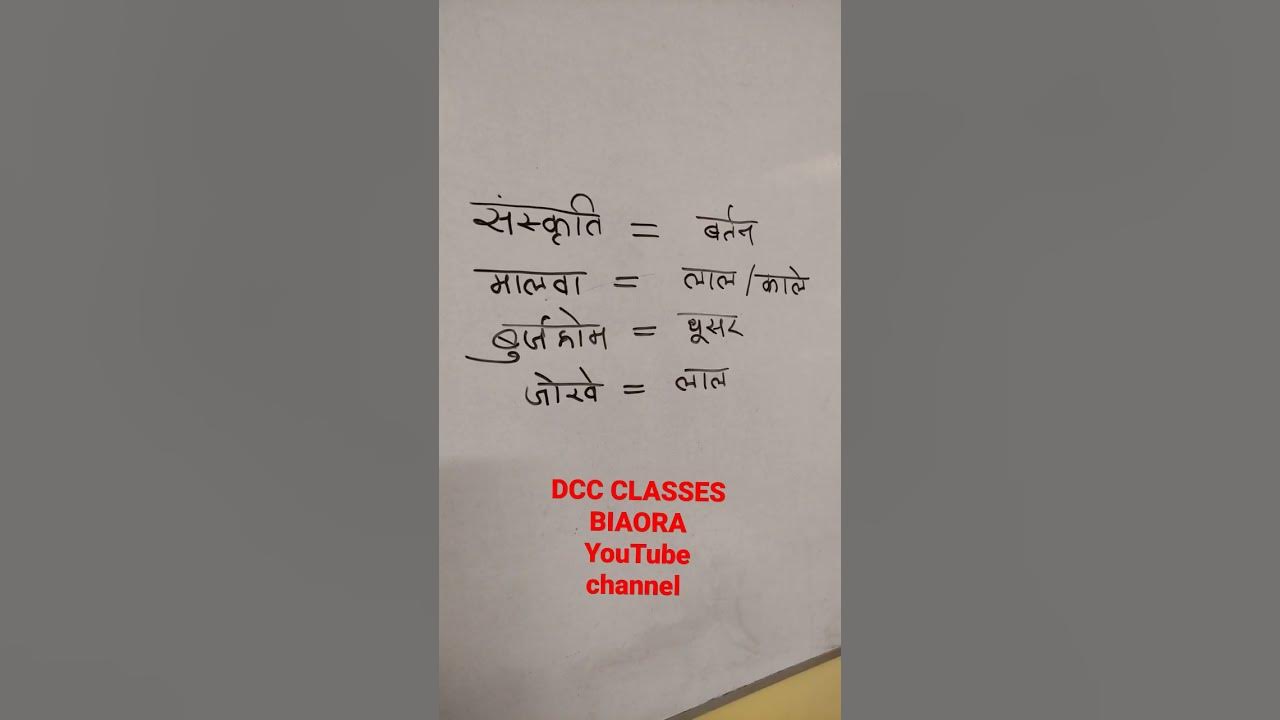 संस्कृति = बर्तन
मालवा = लाल/काले
बुर्जहोम = धूसर
जोरवे = लाल
DCC CLASSES
BIAORA
YouTube
channel